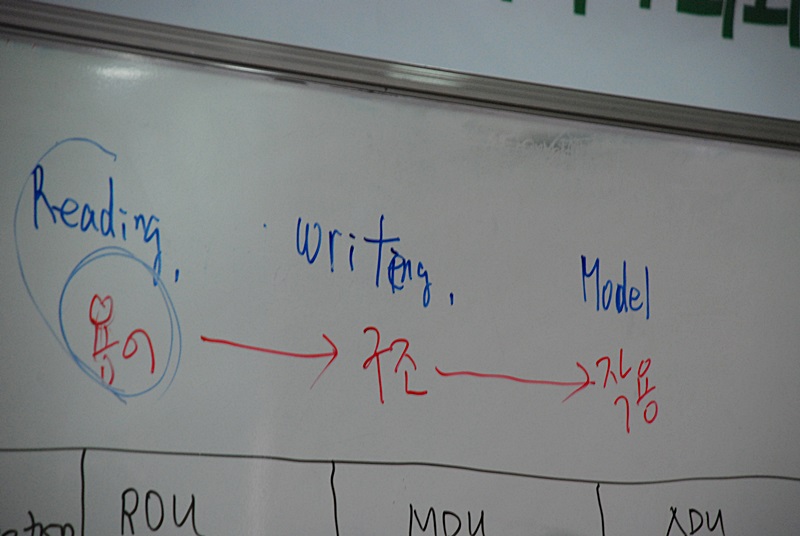 Reading, Writing, Model
용어 → 구조 → 작용
ROU MDU XDU